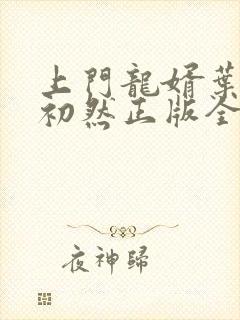 上門龍婿葉
初然正版全
夜神歸